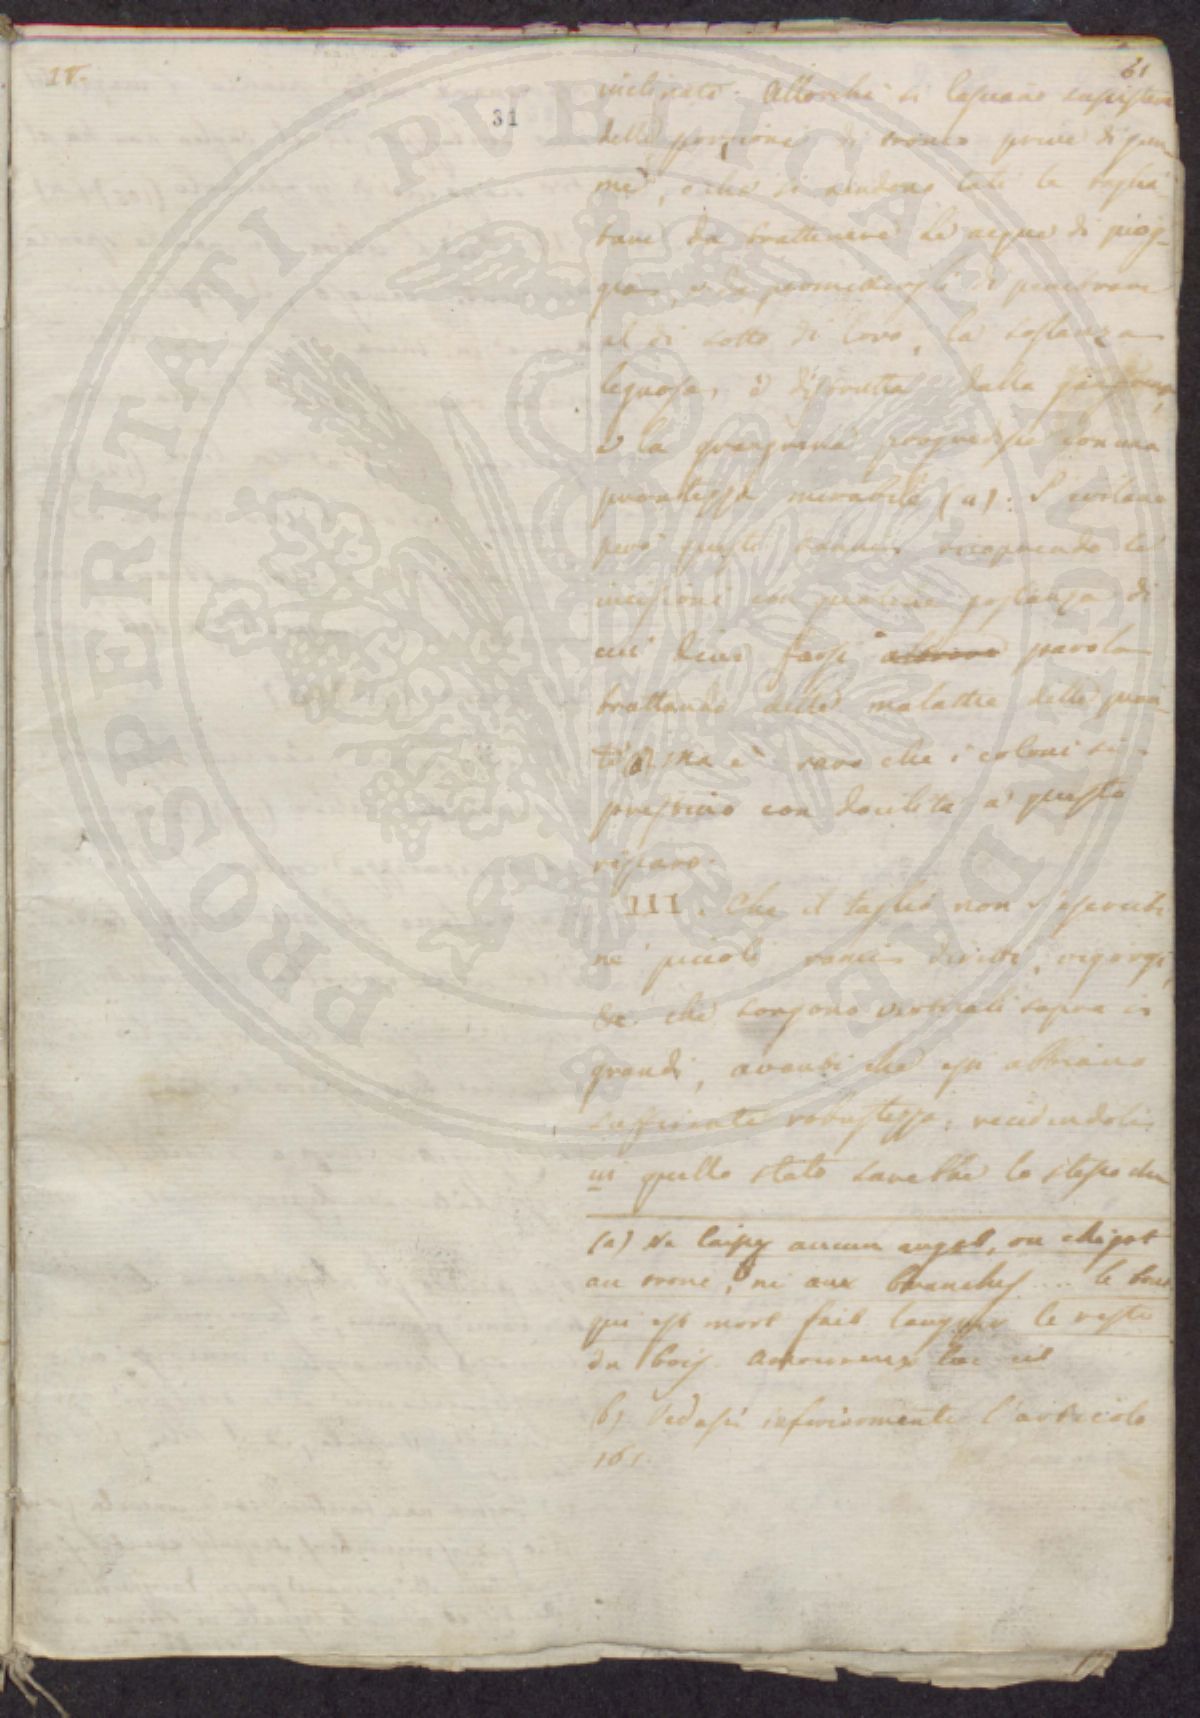 18.
61
31
inclinato. Allorchè si lasciano sussistere
delle porzioni di tronco prive di gem
me, o che si rendono tali le taglia
ture da trattenere le acque di piog-
gia, e da permettergli di penetrare
al di sotto di loro, la sostanza
legnosa, è distrutta dalla gangrena,
e la grangrena progredisce con una
prontezza mirabile (a). S'evitano
però questi danni ricoprendo le
incisioni con qualche sostanza di
cui deve farsi parola
trattando delle malattie delle pian-
te (b). Ma è raro che i coloni si
prestino con docilità a questo
riparo.
III. Che il taglio non s'eserciti
nè piccoli rami diritti, vigorosi,
&c. che sorgono verticali sopra i
grandi, avanti che essi abbiano
sufficiente robustezza, recidendoli
in quello stato sarebbe lo stesso che
(a) Ne laissez aucun ergot, ou chicot
au tronc, ni aux branches .... le bout
qui est mort fait languir le reste
du bois. Amoureux loc. cit
(b) Vedasi inferiormente l'articolo
161.
PROSPERITATI PUBLICAE AUGENDAE